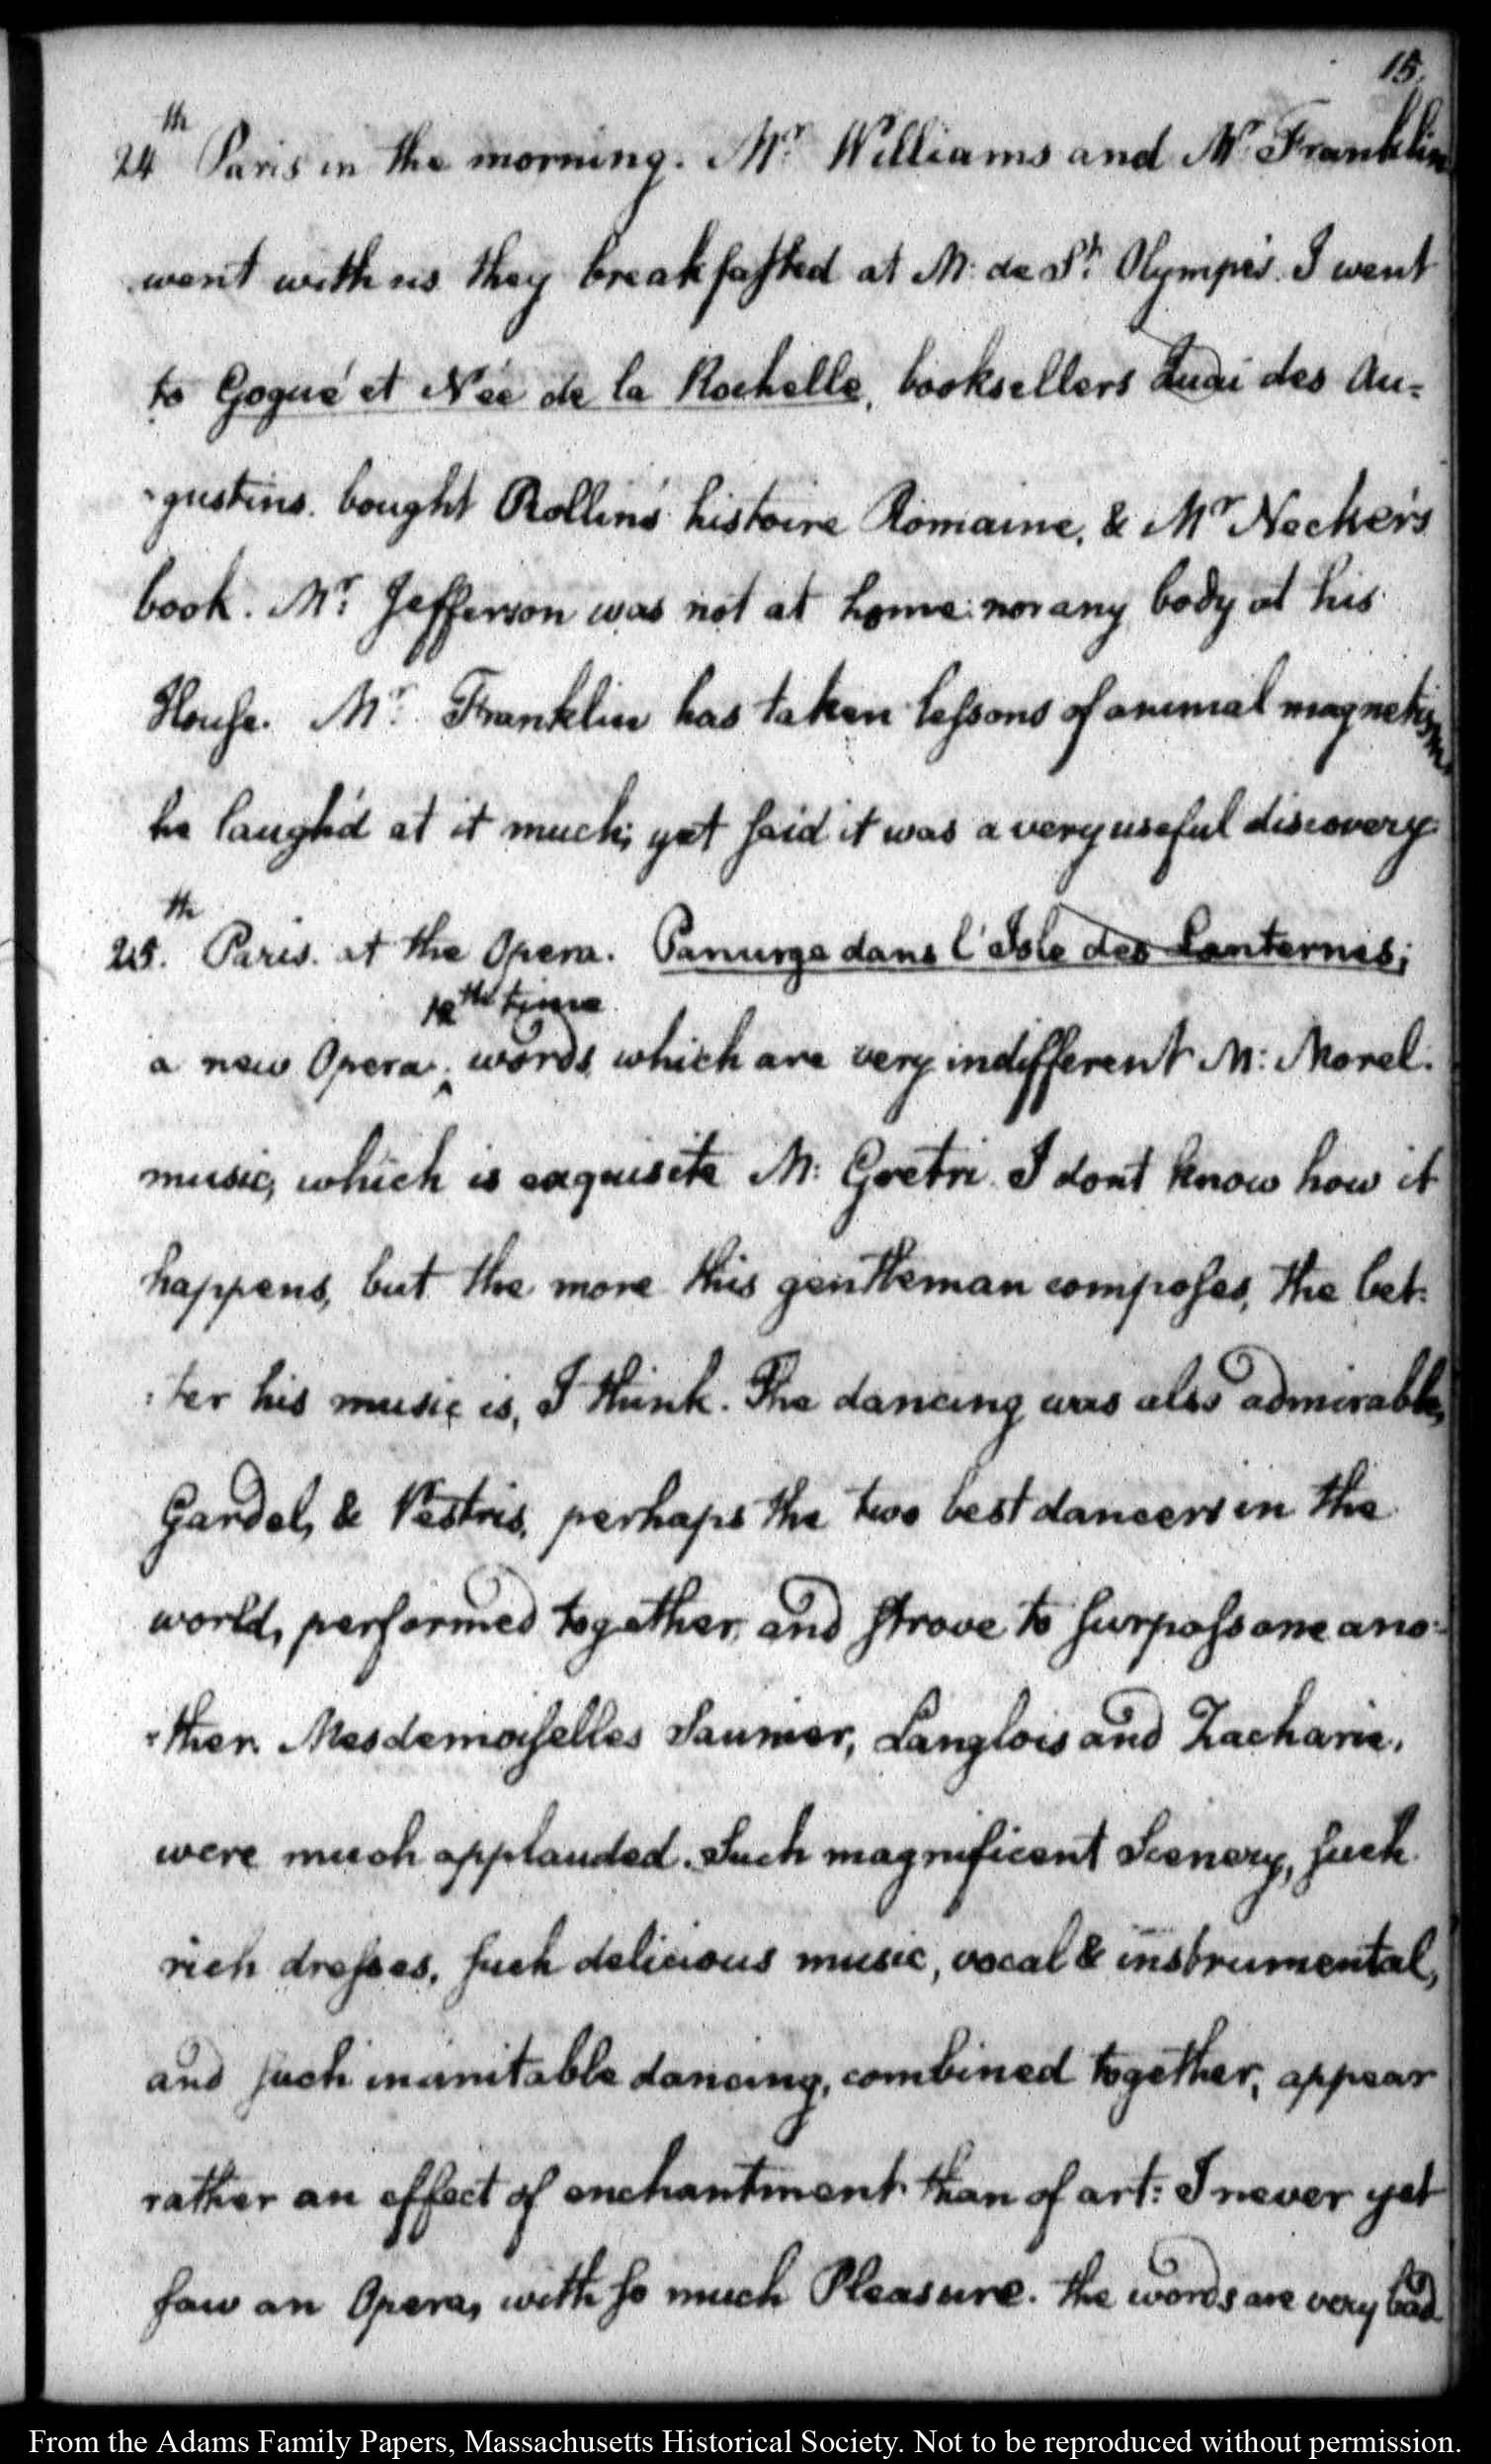 15.
24th Paris in the morning. Mr. Williams and Mr. Franklin
went with us they breakfasted at M: de St. Olympe's. I went
to Gogué et Née de la Rochelle, booksellers Quai des Au=
=gustins. bought Rollin's histoire Romaine, & Mr Necker's
book. Mr. Jefferson was not at home: nor any body at his
House. Mr. Franklin has taken lessons of animal magnetism
he laugh'd at it much; yet said it was a very useful discovery.
25th. Paris. at the Opera. Panurge dans l'Isle des Lanternes;
12th time
a new Opera; ^ words, which are very indifferent M: Morel.
music, which is exquisite M: Gretri. I dont know how it
happens, but the more this gentleman composes, the bet=
=ter his music is, I think. The dancing was also admirable,
Gardel, & Vestris, perhaps the two best dancers in the
world, performed together, and strove to surpass one ano=
=ther. Mesdemoiselles Saunier, Langlois and Zacharie,
were much applauded. Such magnificent Scenery, such
rich dresses, such delicious music, vocal & instrumental,
and such inimitable dancing, combined together, appear
rather an effect of enchantment than of art: I never yet
saw an Opera, with so much Pleasure. the words are very bad
From the Adams Family Papers, Massachusetts Historical Society. Not to be reproduced without permission.